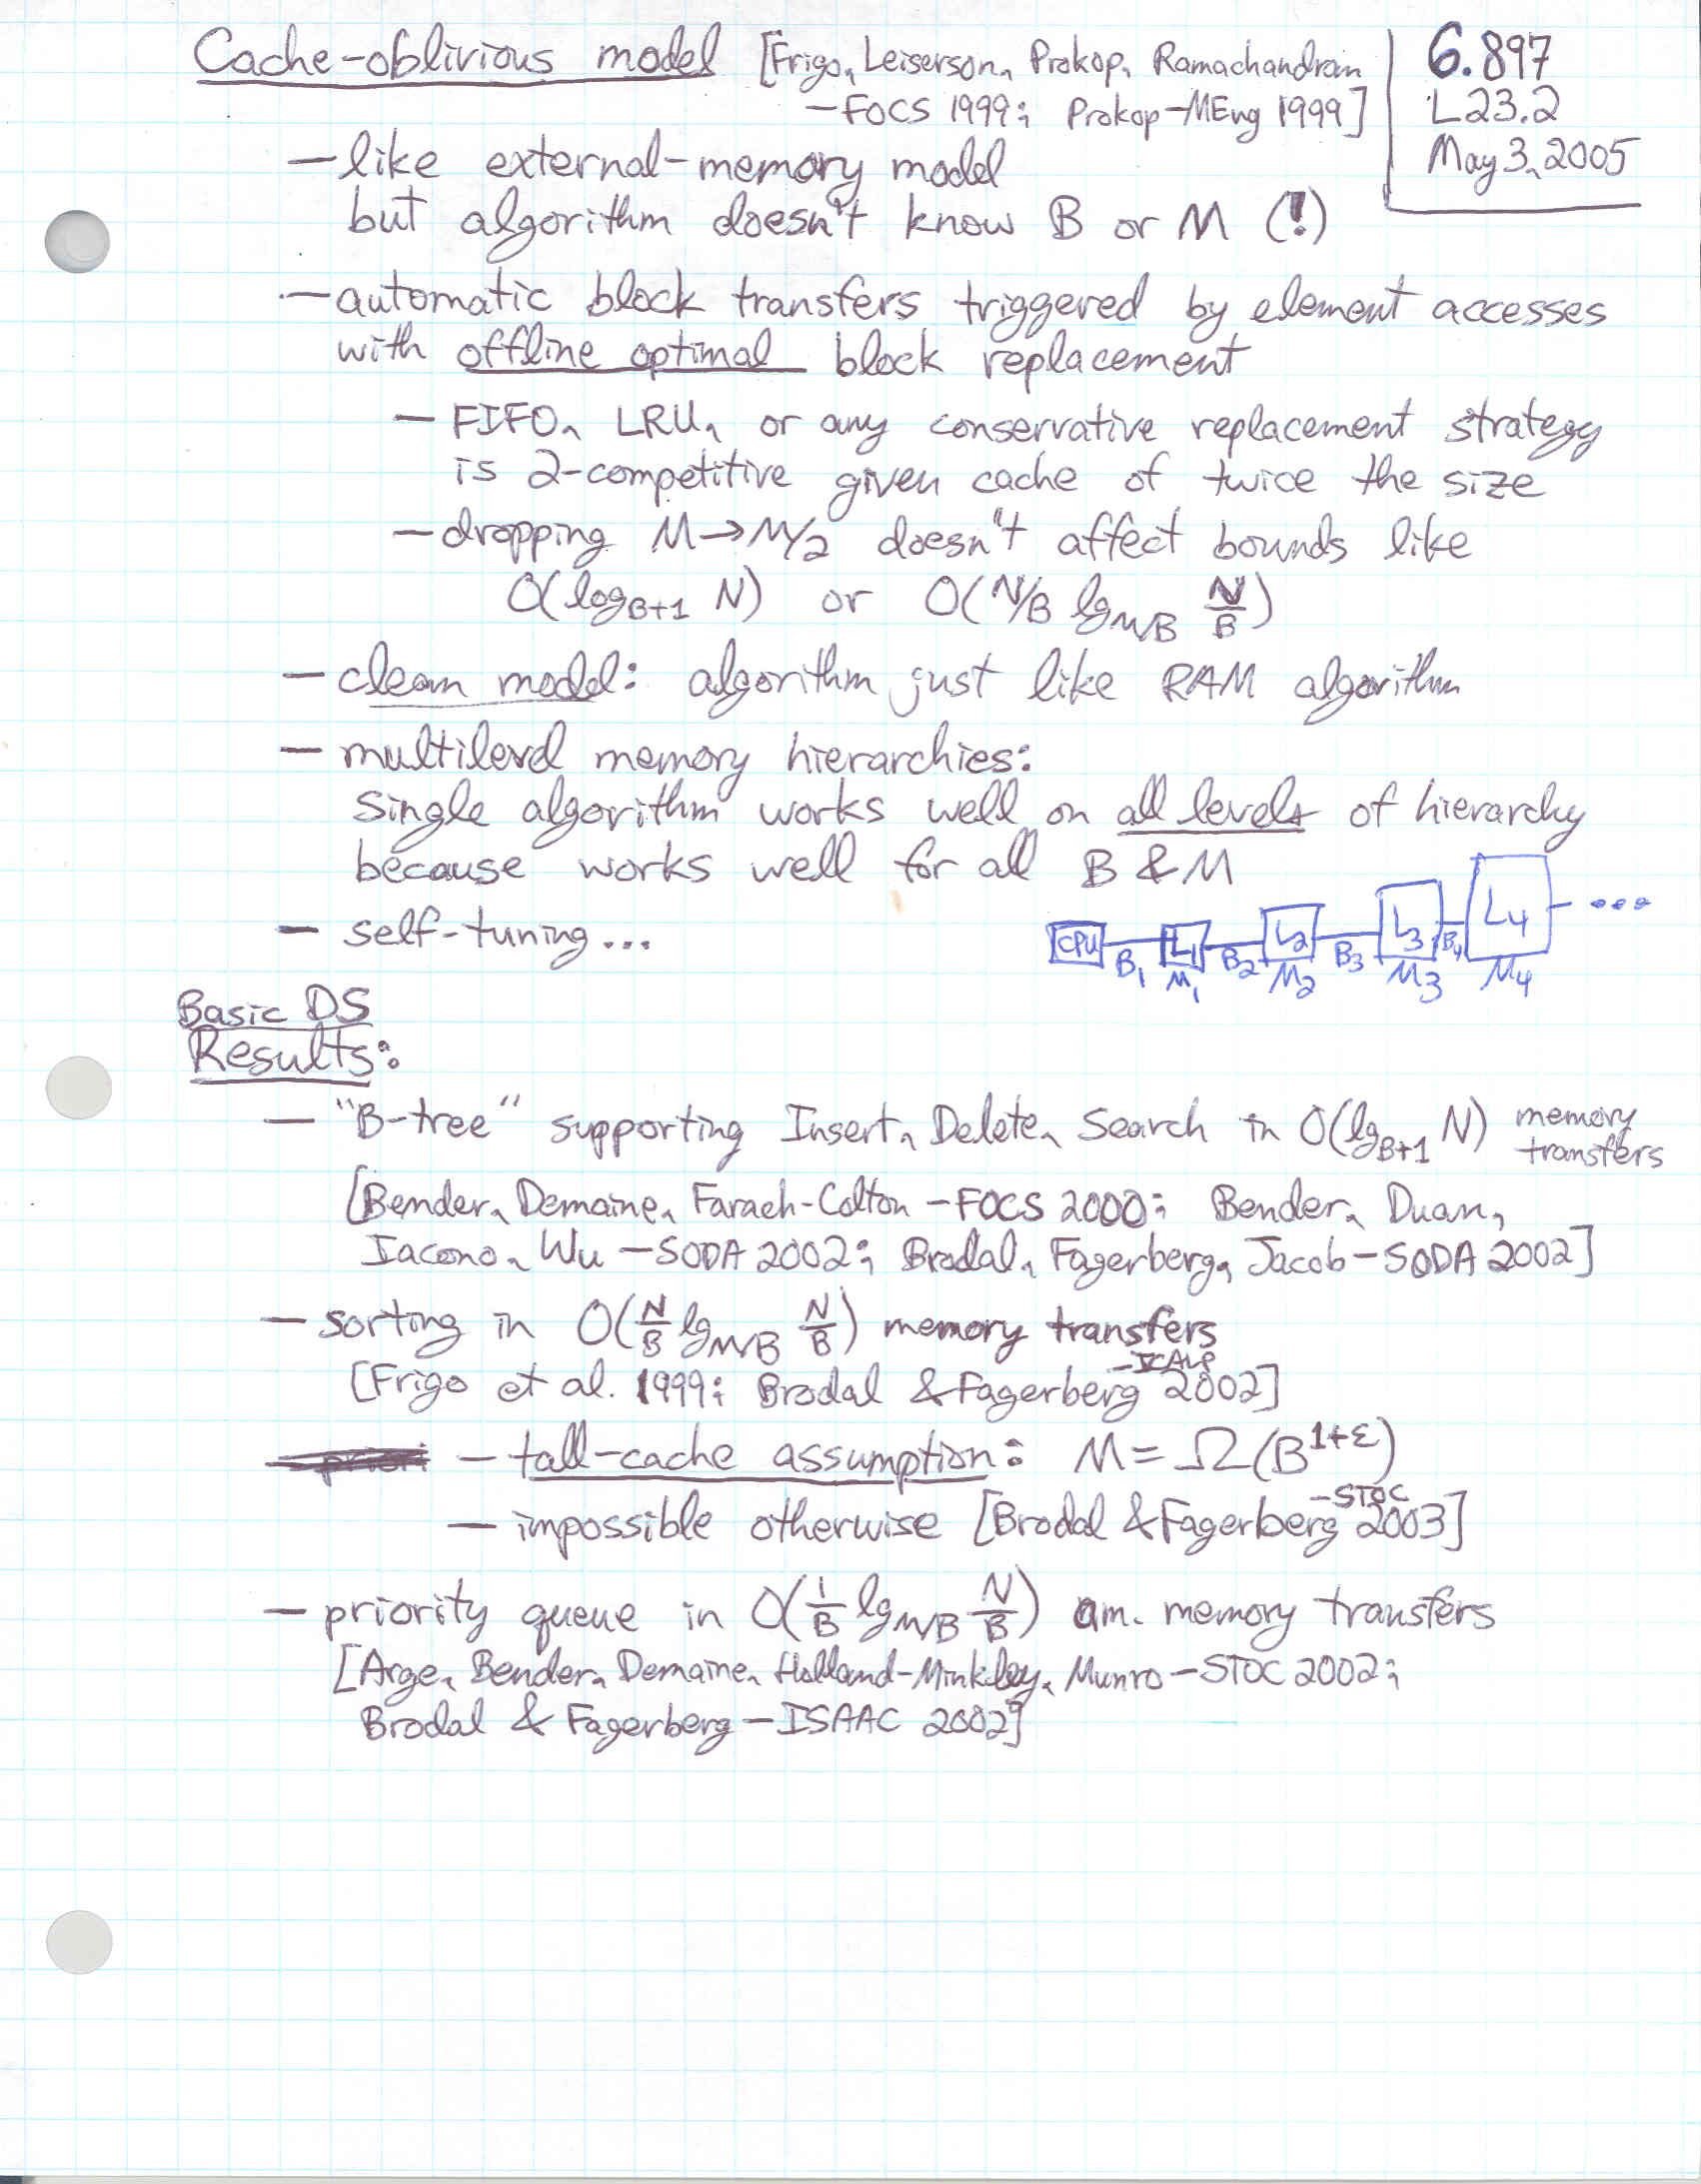 Cache-oblivious model [Frigo, Leiserson, Prokop, Ramachandran
—FOCS 1999; Prokop—MEng 1999]
6.897
L23.2
May 3, 2005
— like external-memory model
but algorithm doesn't know B or M (!)
— automatic block transfers triggered by element accesses
with offline optimal block replacement
— FIFO, LRU, or any conservative replacement strategy
is 2-competitive given cache of twice the size
— dropping M→M/2 doesn't affect bounds like
O(log_{B+1} N) or O(N/B lg_{M/B} N/B)
— clean model: algorithm just like RAM algorithm
— multilevel memory hierarchies:
single algorithm works well on all levels of hierarchy
because works well for all B & M
— self-tuning...
CPU B₁ L1 B₂ L2 B₃ L3 B₄ L4 ...
M₁ M₂ M₃ M₄
Basic DS
Results:
— "B-tree" supporting Insert, Delete, Search in O(lg_{B+1} N) memory
transfers
[Bender, Demaine, Farach-Colton —FOCS 2000; Bender, Duan,
Iacono, Wu —SODA 2002; Brodal, Fagerberg, Jacob—SODA 2002]
— sorting in O(N/B lg_{M/B} N/B) memory transfers
[Frigo et al. 1999; Brodal & Fagerberg —ICALP 2002]
— tall-cache assumption: M = Ω(B^{1+ε})
— impossible otherwise [Brodal & Fagerberg —STOC 2003]
— priority queue in O(1/B lg_{M/B} N/B) am. memory transfers
[Arge, Bender, Demaine, Holland-Minkley, Munro —STOC 2002;
Brodal & Fagerberg —ISAAC 2002]